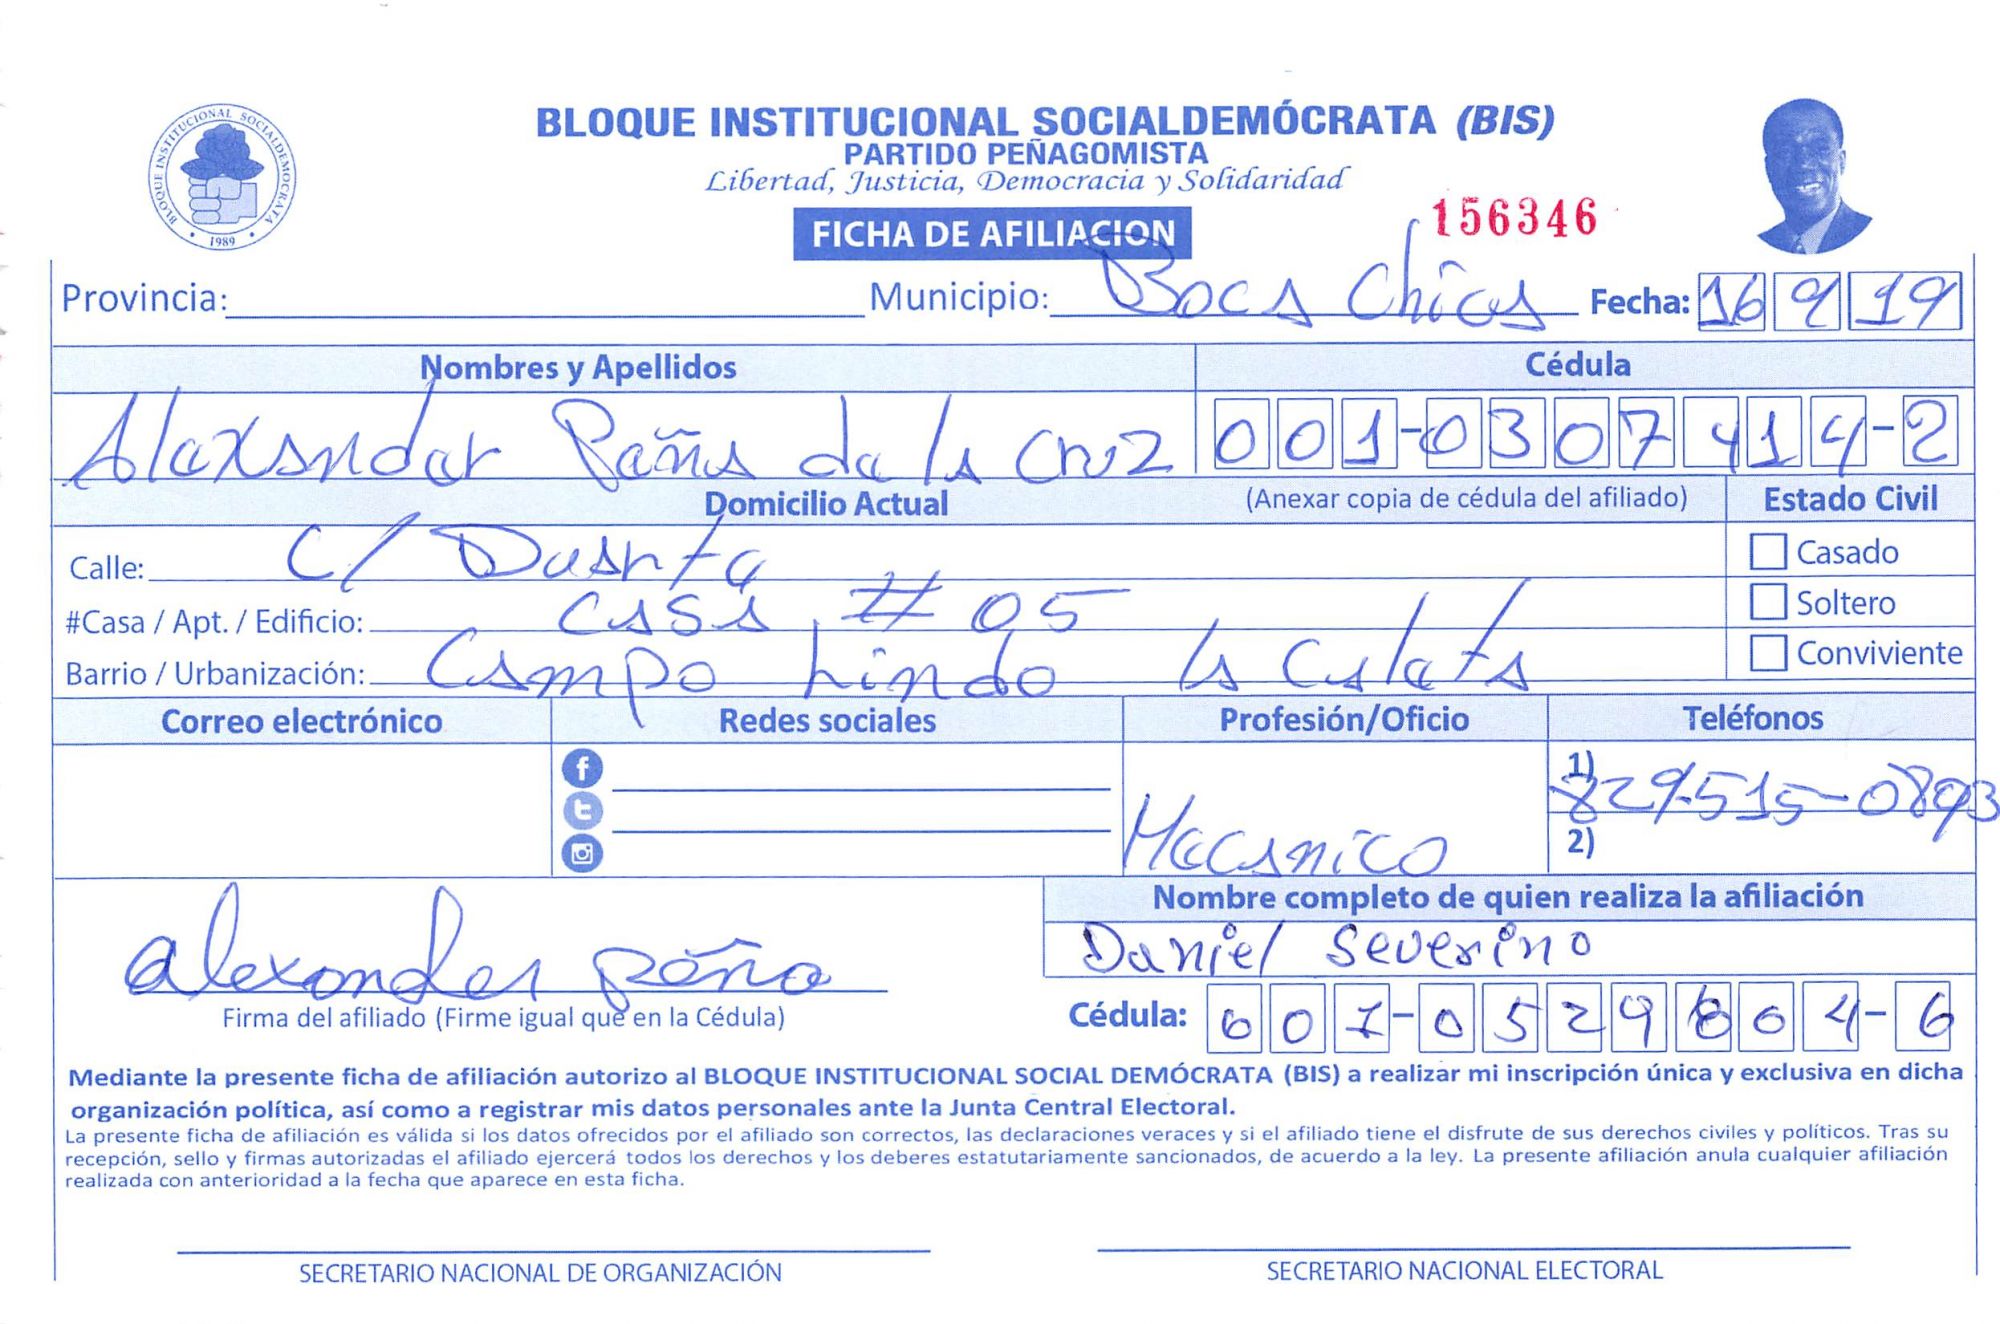 BLOQUE INSTITUCIONAL SOCIALDEMOCRATA
1989
BLOQUE INSTITUCIONAL SOCIALDEMÓCRATA (BIS)
PARTIDO PEÑAGOMISTA
Libertad, Justicia, Democracia y Solidaridad
FICHA DE AFILIACION
156346
Provincia: Municipio: Boca Chica Fecha: 16 9 19
Nombres y Apellidos Cédula
Alexander Peña de la Cruz 001-0307414-2
Domicilio Actual (Anexar copia de cédula del afiliado) Estado Civil
Calle: C/ Duarte Casado
#Casa / Apt. / Edificio: Casa # 05 Soltero
Barrio / Urbanización: Campo Lindo la Caleta Conviviente
Correo electrónico Redes sociales Profesión/Oficio Teléfonos
Mecanico 1) 829-515-0893
2)
Nombre completo de quien realiza la afiliación
Daniel Severino
alexander peña
Firma del afiliado (Firme igual que en la Cédula) Cédula: 001-0529804-6
Mediante la presente ficha de afiliación autorizo al BLOQUE INSTITUCIONAL SOCIAL DEMÓCRATA (BIS) a realizar mi inscripción única y exclusiva en dicha
organización política, así como a registrar mis datos personales ante la Junta Central Electoral.
La presente ficha de afiliación es válida si los datos ofrecidos por el afiliado son correctos, las declaraciones veraces y si el afiliado tiene el disfrute de sus derechos civiles y políticos. Tras su
recepción, sello y firmas autorizadas el afiliado ejercerá todos los derechos y los deberes estatutariamente sancionados, de acuerdo a la ley. La presente afiliación anula cualquier afiliación
realizada con anterioridad a la fecha que aparece en esta ficha.
SECRETARIO NACIONAL DE ORGANIZACIÓN SECRETARIO NACIONAL ELECTORAL